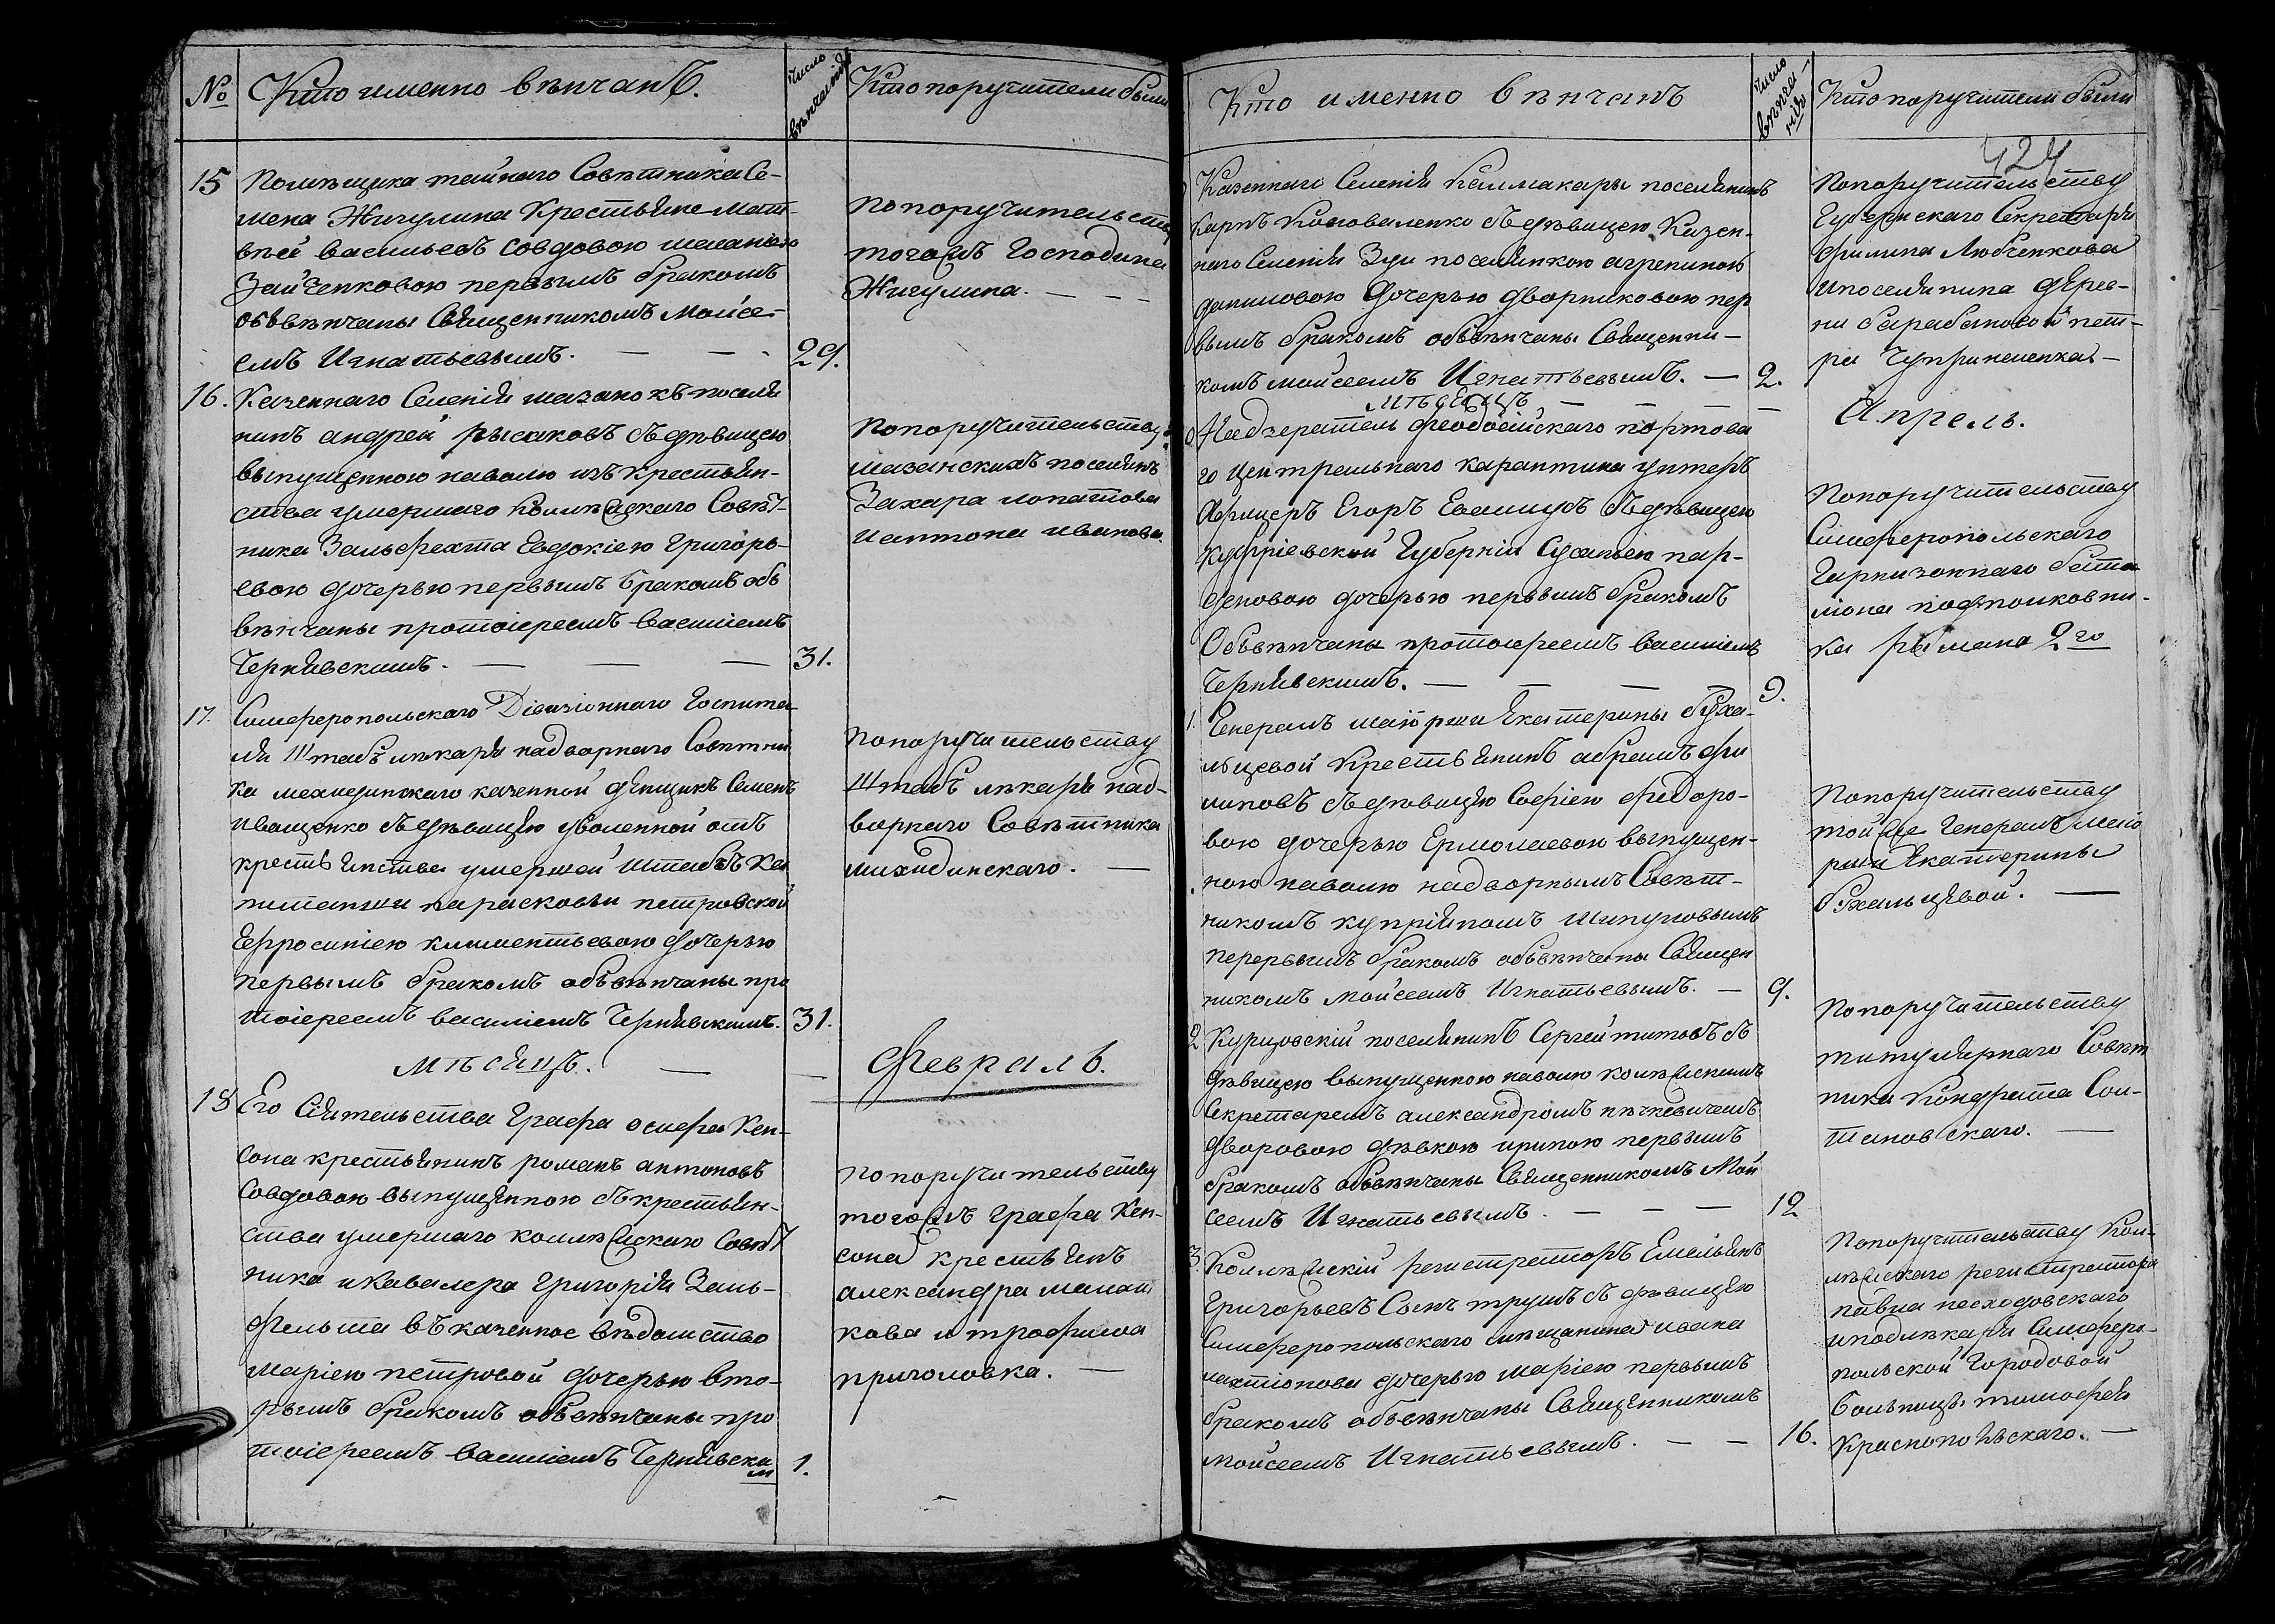 № Кто именно вѣнчанъ. Число вѣнчанія Кто поручители были
15 Помѣщика тайнаго Совѣтника Се-
мена Жигулина Крестьяне Мат-
вѣй Васильевъ совдовою Меланьею
Зайченковою первымъ бракомъ
обвѣнчаны Священникомъ Моисе-
емъ Игнатьевымъ. — — 29.
По поручительству
тогожъ Господина
Жигулина. — — —
16. Казеннаго Селенія Мазанокъ поселя
нинъ Андрей Рысаковъ съ дѣвицею
выпущенною наволю изъ крестьян-
ства умершаго Коллежскаго Совѣт-
ника Евдокіею Григорь-
евою дочерью первымъ бракомъ объ
вѣнчаны протоіереемъ Василіемъ
Чернявскимъ. — — — 31.
По поручительству
мазанскихъ поселянъ
Захара Лопатова
и Антона Иванова.
17. Симферопольскаго Дивизіоннаго Госпита-
ля Штабъ лѣкаря надворнаго Совѣтни
ка казенной денщикъ Семенъ
Иващенко съ дѣвицею уволенной отъ
крестьянства умершей Штабсъ Ка
питанши Парасковьи Петровской
Ефросиніею Климентьевою дочерью
первымъ бракомъ обвѣнчаны про
тоіереемъ Василіемъ Чернявскимъ. 31.
По поручительству
Штабъ лѣкаря над-
ворнаго Совѣтника
Михидинскаго. —
мѣсяцъ. — — Февраль.
18 Его Сіятельства Графа Осифа Кен-
сона крестьянинъ Романъ Антоновъ
совдовою выпущенною съ крестьян-
ства умершаго коллежскаго Совѣт
ника и Кавалера Григорія Заль-
фельта въ казенное вѣдомство
Маріею Петровой дочерью вто-
рымъ бракомъ обвѣнчаны про
тоіереемъ Василіемъ Чернявским 1.
По поручительству
тогожъ Графа Кен-
сона крестьянъ
Александра
кова и Трофима
Приголовка. —
Кто именно вѣнчанъ Число вѣнчанія Кто поручители были
424
Казеннаго Селенія Калмакары поселянинъ
Карпъ Коноваленко съ дѣвицею Казен-
наго Селенія Зуи поселянкою Агрепиною
Даниловою дочерью Дворниковою пер
вымъ бракомъ обвѣнчаны Священни-
комъ Моисеемъ Игнатьевымъ. — 2.
По поручительству
Губернскаго Секретаря
Филипа Любченкова
и поселянина дерев-
ни Барабановой Пет-
ра —
мѣсяцъ — — — — Апрель.
Надзератель Феодосійскаго портова
го центральнаго карантина унтеръ
Офицеръ Егоръ съ дѣвицею
Губерніи пар-
феновою дочерью первымъ бракомъ
Обвѣнчаны протоіереемъ Василіемъ
Чернявскимъ. — — — — 9.
По поручительству
Симферопольскаго
Гарнизоннаго бата
ліона подполковни-
ка 2го
1. Генералъ маіорши Екатерины Буха-
льцевой Крестьянинъ Абрамъ Фи
липовъ съ дѣвицею Софіею Федоро-
вою дочерью Ермолаевою выпущен-
ною наволю надворнымъ Совѣт-
никомъ Купріяномъ
перервымъ бракомъ обвѣнчаны Священ
никомъ Моисеемъ Игнатьевымъ. — 9.
По поручительству
той же Генералъ маіо
рши Екатерины
Бухальцевой. —
2 Курцовскій поселянинъ Сергей Титовъ съ
дѣвицею выпущенною наволю колежскимъ
Секретаремъ Александромъ
дворовою дѣвкою Ириною первымъ
бракомъ обвѣнчаны Священникомъ Мои
сеемъ Игнатьевымъ. — — — 12
По поручительству
титулярнаго Совѣт
ника Кондрата Сол-
тановскаго. —
3. Коллежскій регистраторъ Емельянъ
Григорьевъ Сынъ съ дѣвицею
Симферопольскаго мѣщанина Ивана
дочерью Маріею первымъ
бракомъ обвѣнчаны Священникомъ
Моисеемъ Игнатьевымъ. — — 16.
По поручительству Кол-
лежскаго регистратора
Павла
и подлѣкаря Симферо-
польской Городовой
Больницы Тимофея
Краснопольскаго. —